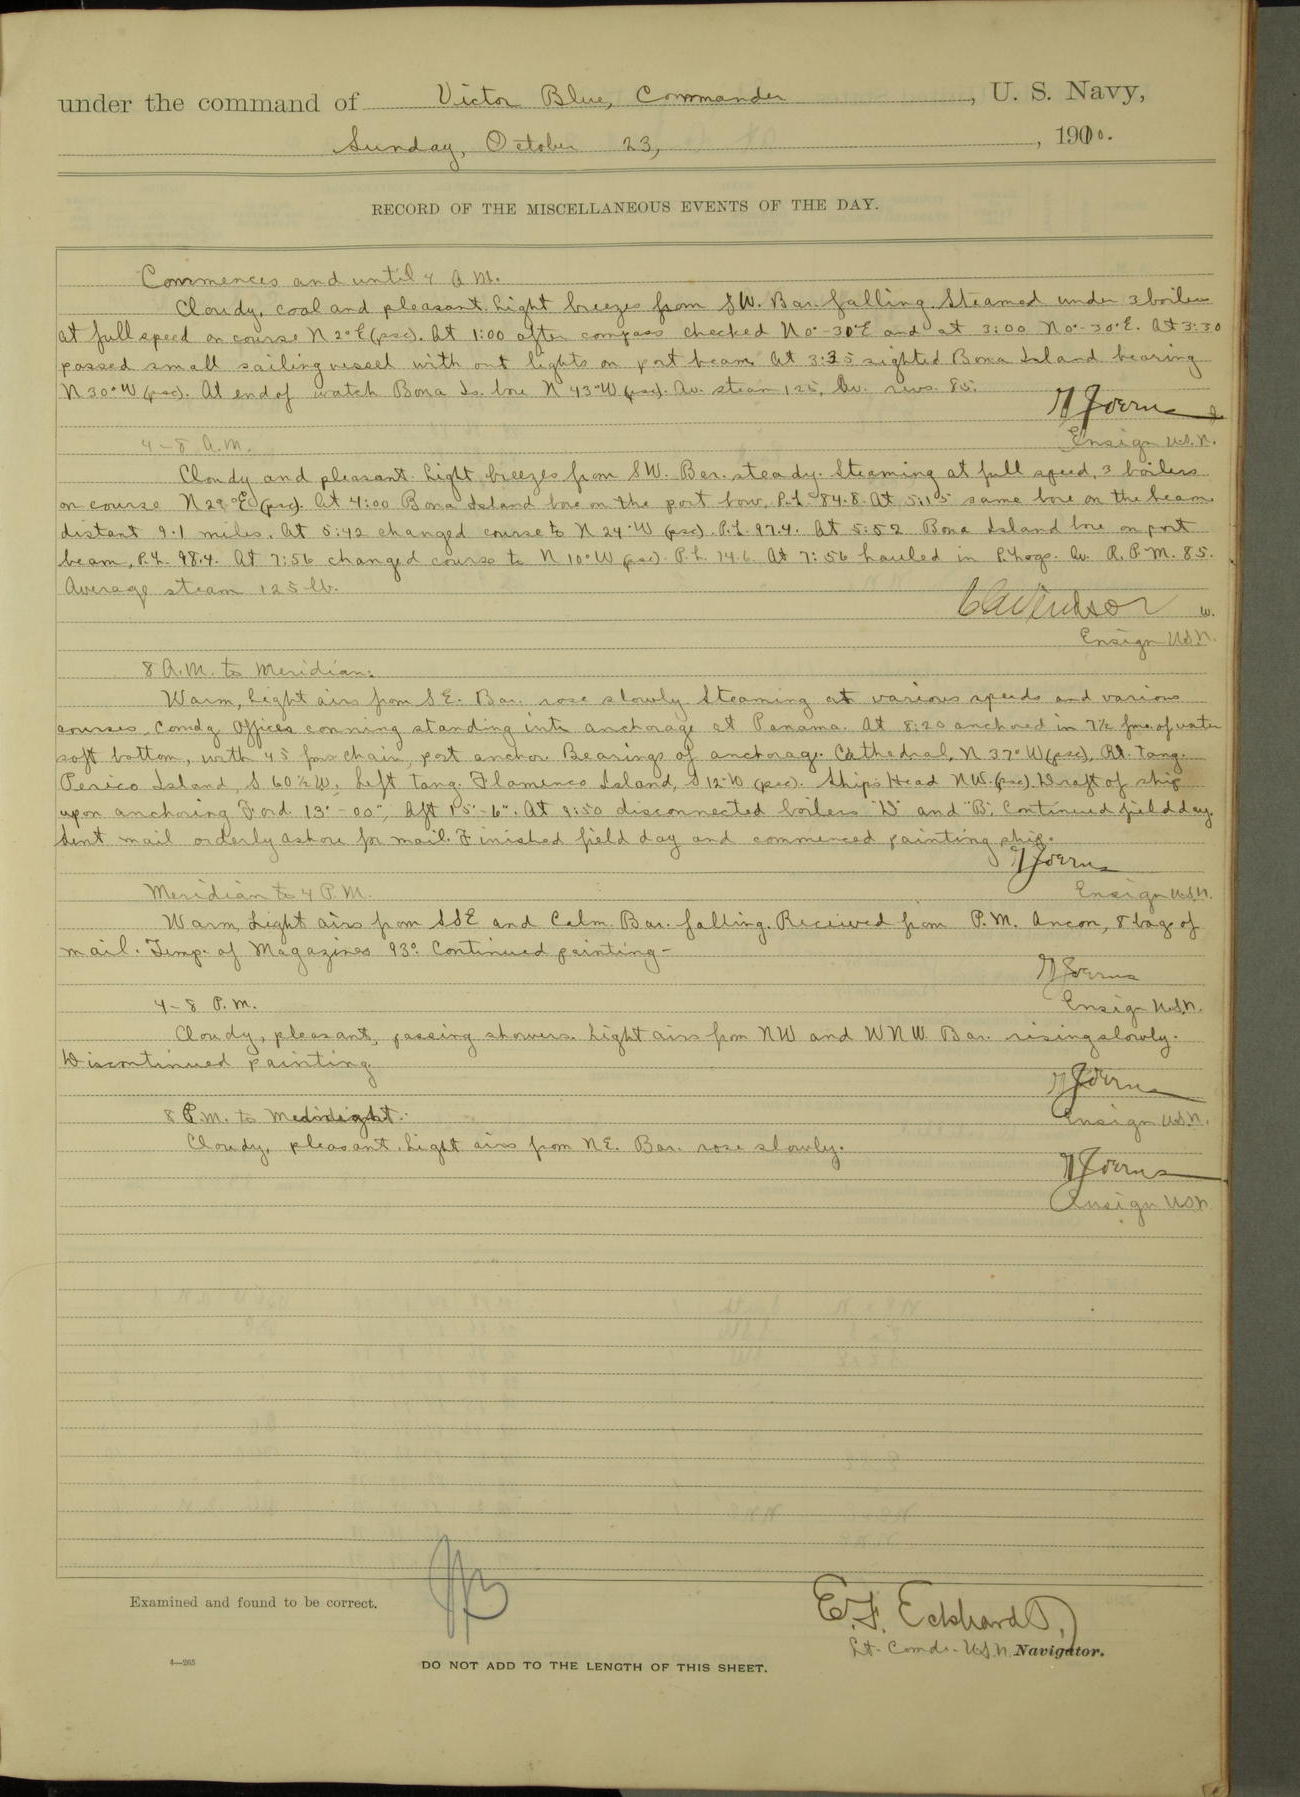 under the command of Victor Blue, Commander, U. S. Navy,
Sunday, October 23, , 1910.
RECORD OF THE MISCELLANEOUS EVENTS OF THE DAY.
Commences and until 4 A.M.
Cloudy, cool and pleasant. Light breezes from SW. Bar. falling. Steamed under 3 boilers
at full speed on course N 2° E (psc). At 1:00 after compass checked N 0°-30' E and at 3:00 N 0°-30' E. At 3:30
passed small sailing vessel with out lights on port beam. At 3:35 sighted Bona Island bearing
N 30° W (psc). At end of watch Bona Is. bore N 43° W (psc). Av. steam 125, Av. revs. 85.
Ensign U.S.N.
4-8 A.M.
Cloudy and pleasant. Light breezes from SW. Bar. steady. Steaming at full speed, 3 boilers
on course N 2° E (psc). At 4:00 Bona Island bore on the port bow. P.L. 84.8. At 5:15 same bore on the beam
distant 9.1 miles. At 5:42 changed course to N 24° W (psc). P.L. 97.4. At 5:52 Bona Island bore on port
beam, P.L. 98.4. At 7:56 changed course to N 10° W (psc). P.L. 14.6. At 7:56 hauled in P. logs. Av. R.P.M. 85.
Average steam 125 lb.
Ensign U.S.N.
8 A.M. to Meridian:
Warm, light airs from SE. Bar. rose slowly. Steaming at various speeds and various
courses, Comdg Officer conning standing into anchorage at Panama. At 8:20 anchored in 7½ fms of water
soft bottom, with 45 fms chain, port anchor. Bearings of anchorage: Cathedral, N 37° W (psc), Rt. tang.
Perico Island, S 60½ W, Left tang. Flamenco Island, S 12° W (psc). Ships Head NW. (psc). Draft of ship
upon anchoring Ford 13'-00", Aft 15'-6". At 9:50 disconnected boilers "D" and "B". Continued field day.
Sent mail orderly ashore for mail. Finished field day and commenced painting ship.
Ensign U.S.N.
Meridian to 4 P.M.
Warm, Light airs from SSE and Calm. Bar. falling. Received from P.M. Ancon, 8 bags of
mail. Temp. of Magazines 93°. Continued painting-
Ensign U.S.N.
4-8 P.M.
Cloudy, pleasant, passing showers. Light airs from NW and WNW. Bar. rising slowly.
Discontinued painting
Ensign U.S.N.
8 P.M. to Midnight.
Cloudy, pleasant. Light airs from NE. Bar. rose slowly.
Ensign USN
Examined and found to be correct.
E.F. Eckhardt,
Lt. Comdr. U.S.N. Navigator.
4—265
DO NOT ADD TO THE LENGTH OF THIS SHEET.